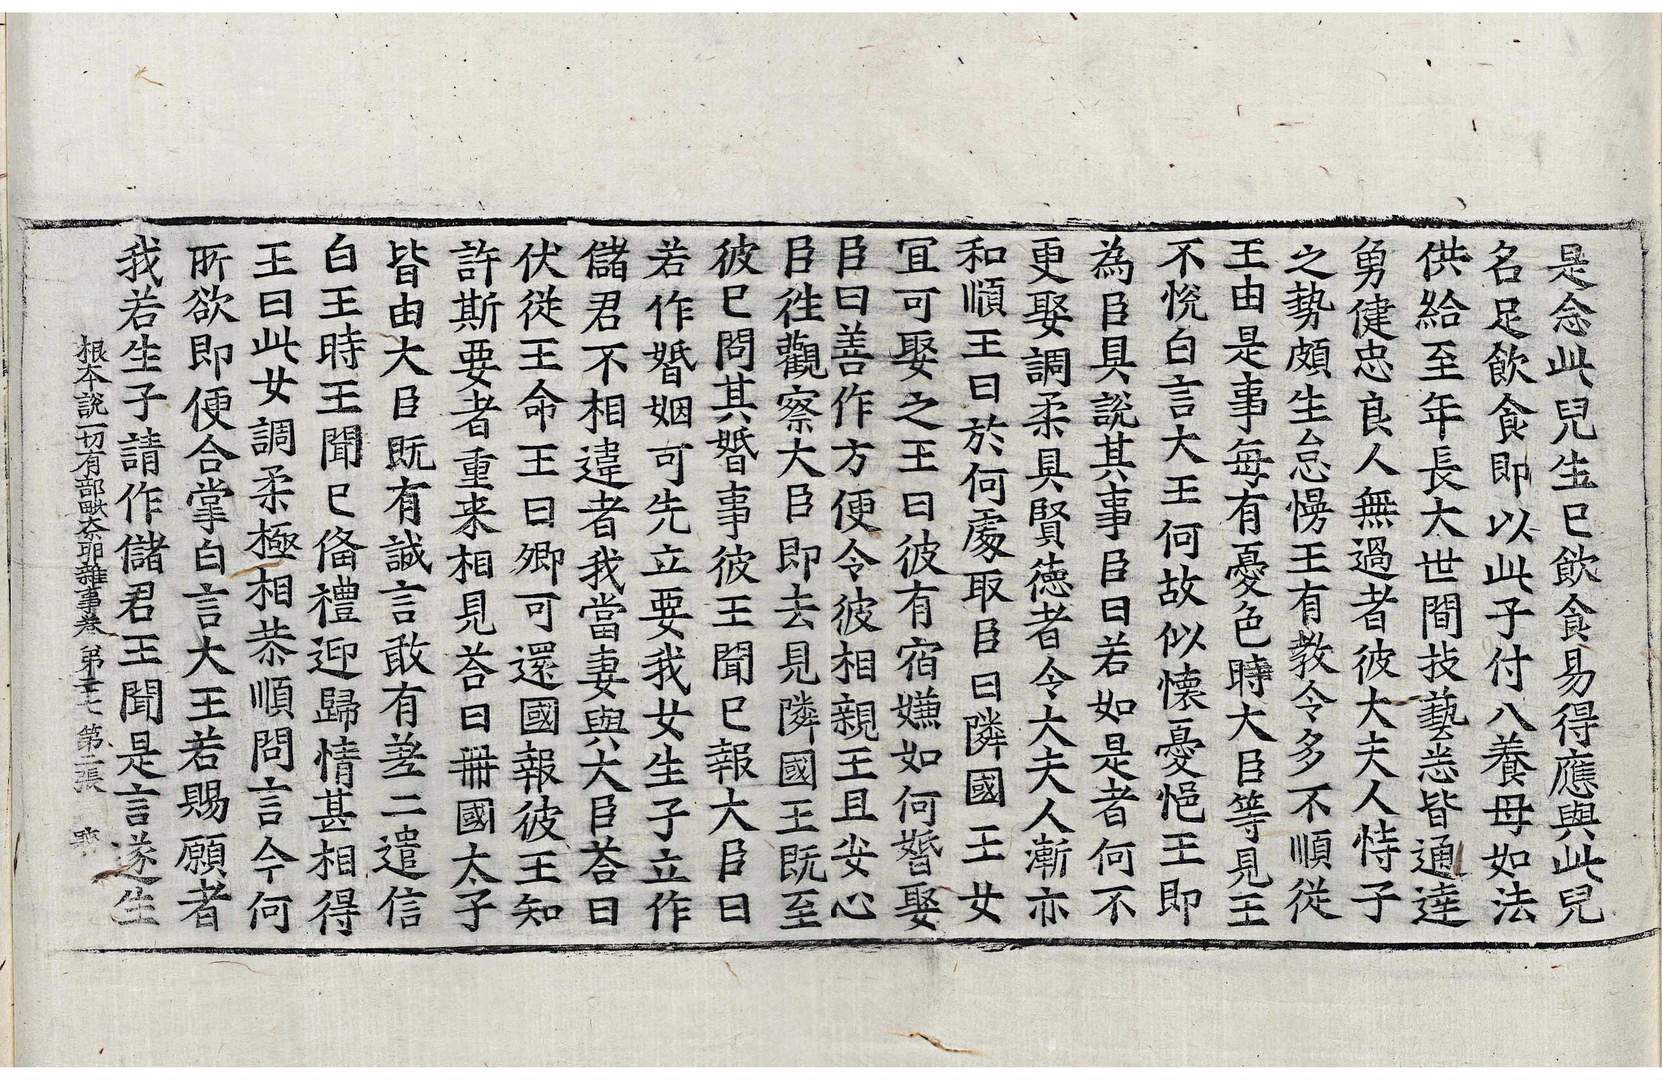 是念此兒生已飲食易得應與此兒
名足飲食即以此子付八養母如法
供給至年長大世間技藝悉皆通達
勇健忠良人無過者彼大夫人恃子
之勢頗生怠慢王有敎令多不順從
王由是事每有憂色時大臣等見王
不悅白言大王何故似懷憂悒王即
為臣具說其事臣曰若如是者何不
更娶調柔具賢德者令大夫人漸亦
和順王曰於何處取臣曰隣國王女
冝可娶之王曰彼有宿嫌如何婚娶
臣曰善作方便令彼相親王且安心
臣徃觀察大臣即去見隣國王旣至
彼已問其婚事彼王聞已報大臣曰
若作婚姻可先立要我女生子立作
儲君不相違者我當妻與大臣荅曰
伏從王命王曰卿可還國報彼王知
許斯要者重来相見荅曰冊國太子
皆由大臣旣有誠言敢有差二遣信
白王時王聞已俻禮迎歸情甚相得
王曰此女調柔極相恭順問言今何
所欲即便合掌白言大王若賜願者
我若生子請作儲君王聞是言遂生
根本說一切有部毗奈耶雜事卷 第二七 第二張